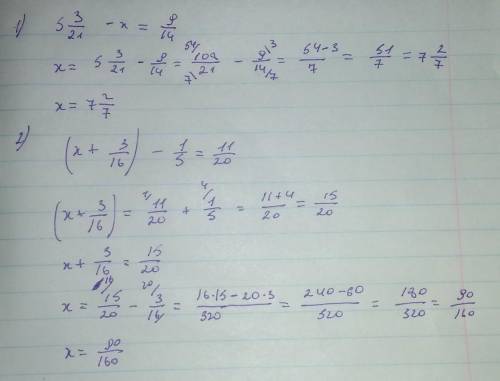 1) 5 3/21 - x = 9/14
x = 5 3/21 - 9/14 = 54\ 108/21 7\ - 9\3/14/7 = 54-3/7 = 51/7 = 7 2/7
x = 7 2/7
2) (x + 3/16) - 1/5 = 11/20
(x + 3/16) = 1/ 11/20 + 4/ 1/5 = 11+4/20 = 15/20
x + 3/16 = 15/20
x = 16/ 15/20 - 20/ 3/16 = 16·15-20·3/320 = 240-60/320 = 180/320 = 90/160
x = 90/160